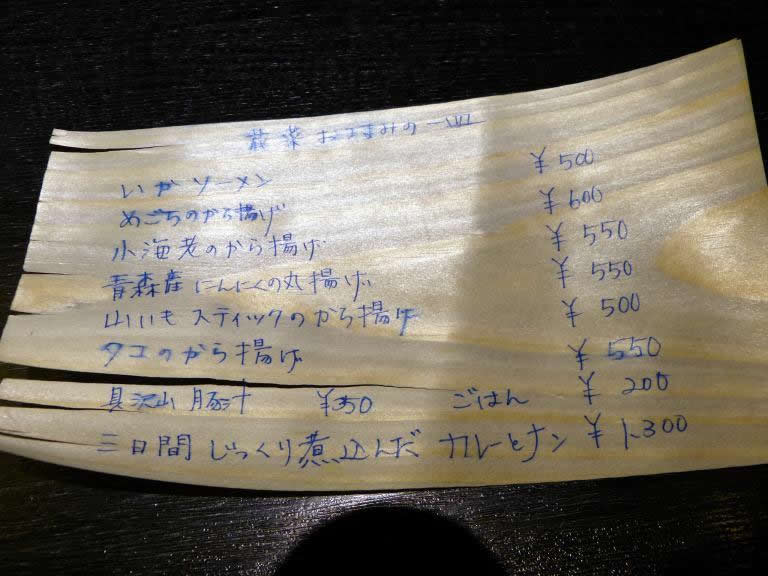 蕺菜 おつまみの一皿
いかソーメン ¥500
めごちのから揚げ ¥600
小海老のから揚げ ¥550
青森産にんにくの丸揚げ ¥550
山いもスティックのから揚げ ¥500
タコのから揚げ ¥550
具沢山豚汁 ¥350 ごはん ¥200
三日間じっくり煮込んだ カレーとナン ¥1.300